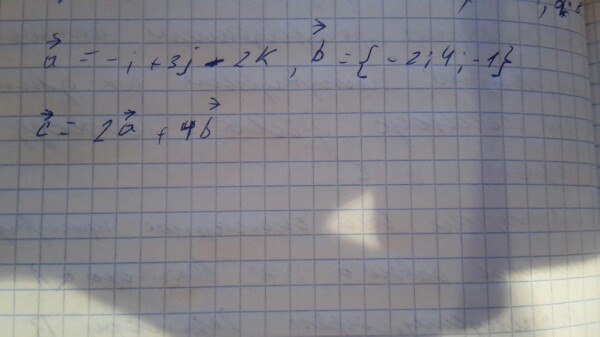 a⃗ = -i + 3j - 2k, b⃗ = {-2; 4; -1}
c⃗ = 2a⃗ + 4b⃗